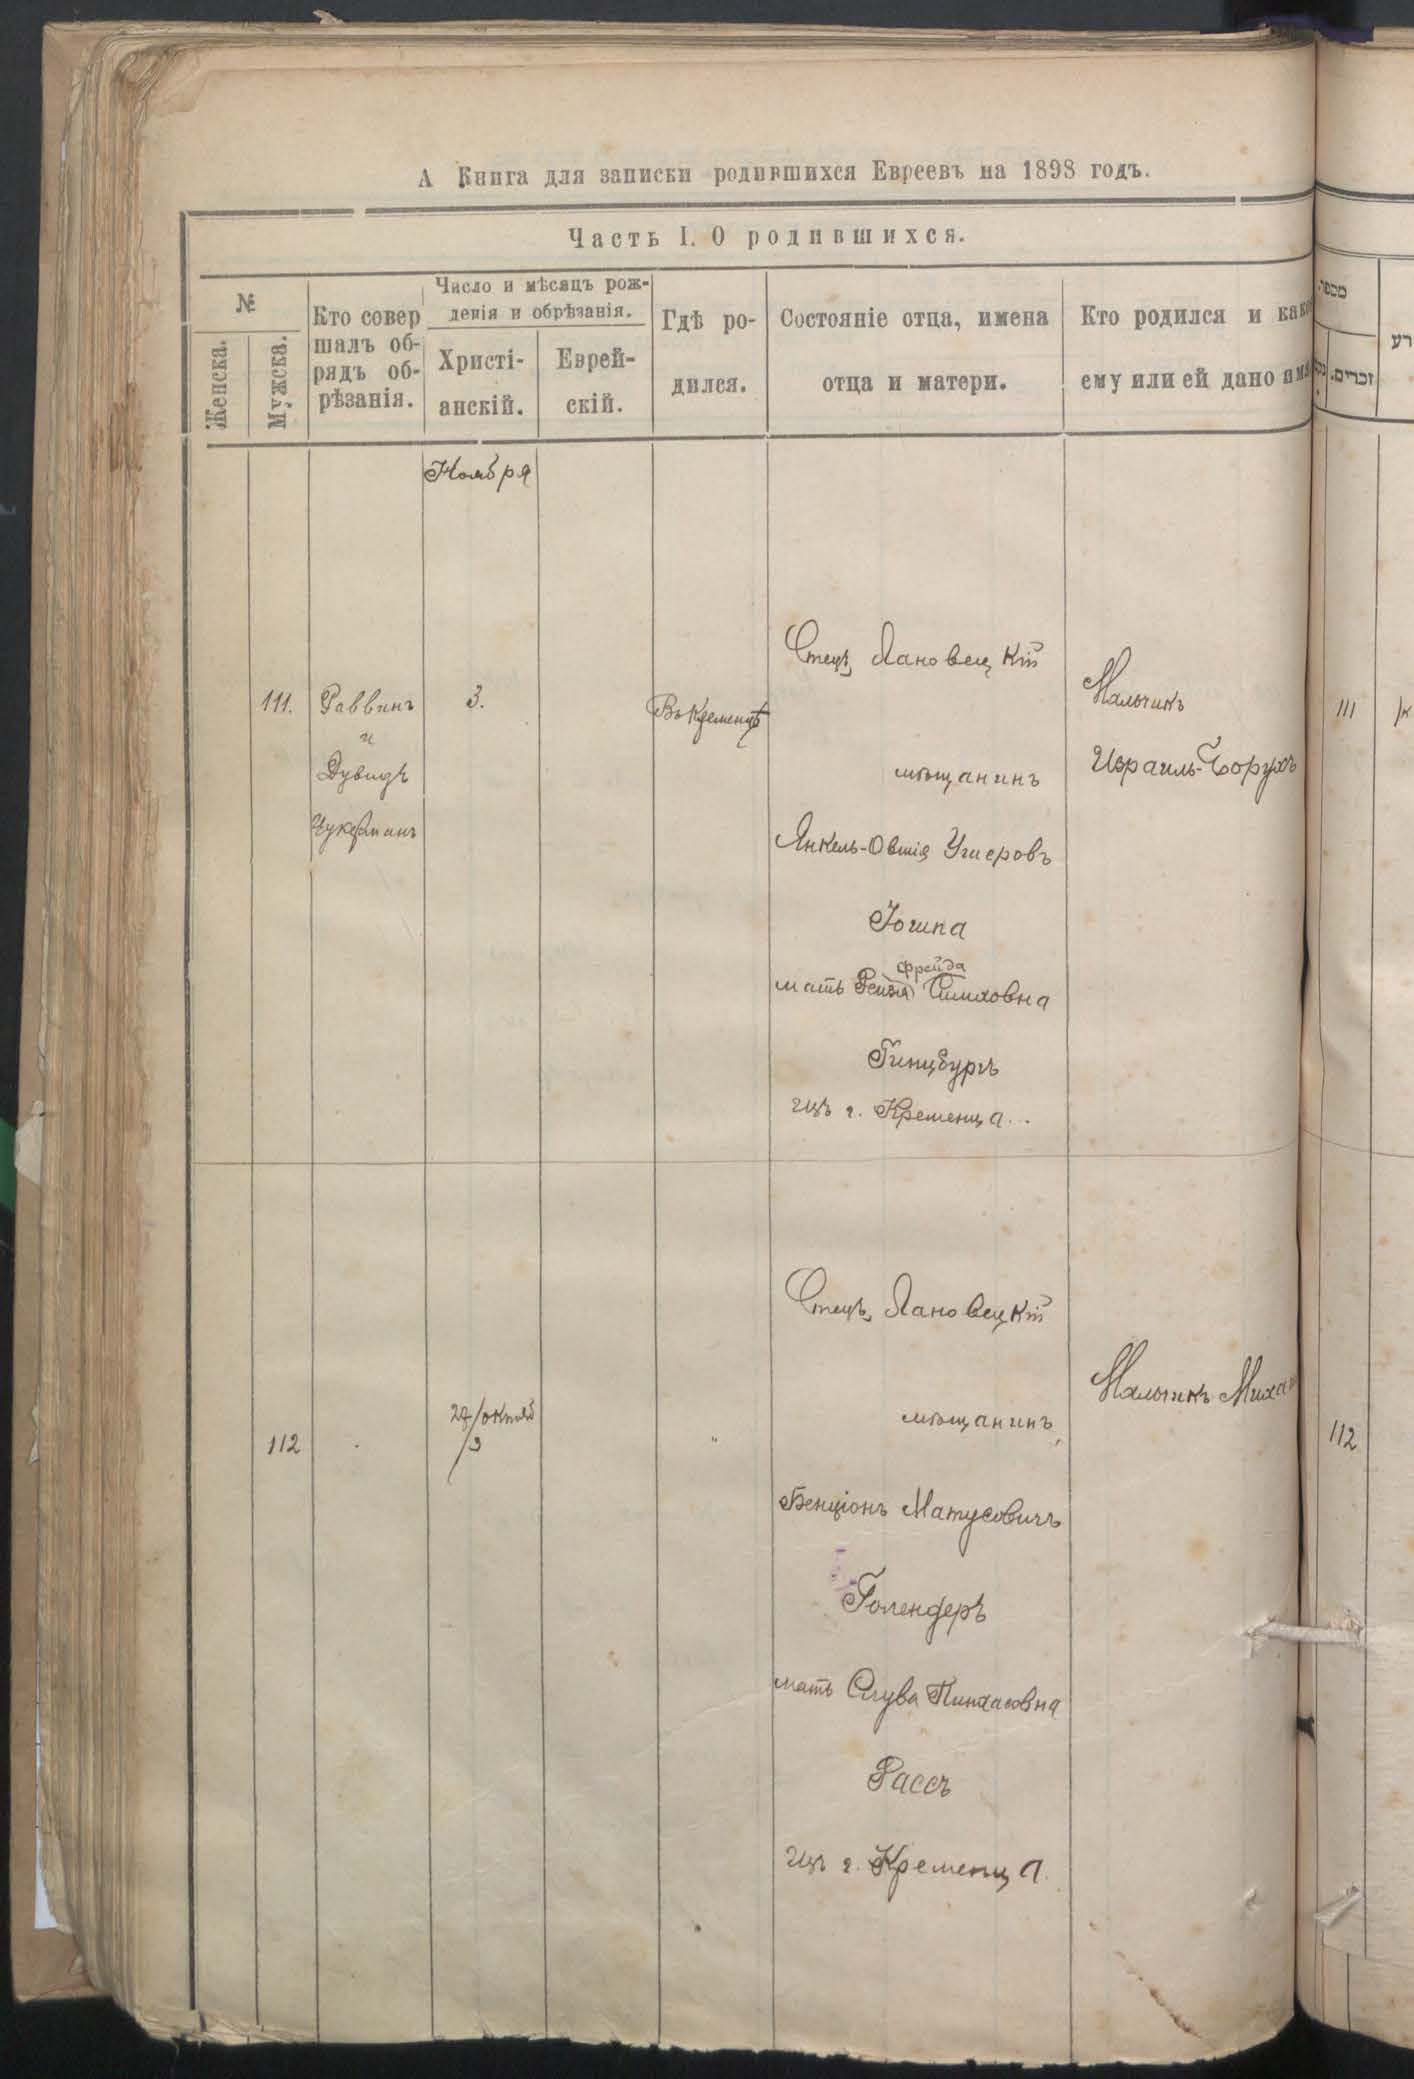 А Книга для записки родившихся Евреевъ на 1898 годъ.
Часть I. О родившихся.
№
Женска.
Мужска.
Кто совер
шалъ об-
рядъ об-
рѣзанія.
Число и мѣсяцъ рож-
денія и обрѣзанія.
Христі-
анскій.
Еврей-
скій.
Гдѣ ро-
дился.
Состояніе отца, имена
отца и матери.
Кто родился и како
ему или ей дано имя
מספר
זכרים.
Ноября
111.
Раввинъ
и
Дувидъ
Цукерманъ
3.
Въ Кременцѣ
Отецъ Лановецкій
мѣщанинъ
Янкель-Овшія
мать Рейзя Фрейда Симховна
Гинцбургъ
изъ г. Кременца..
Мальчикъ
Израиль-Борухъ
111
112
28/октяб
/3
"
Отецъ Лановецкій
мѣщанинъ,
Бенціонъ Матусовичъ
Голендеръ
мать Слува Пинхасовна
Рассъ
изъ г. Кременца.
Мальчикъ
112